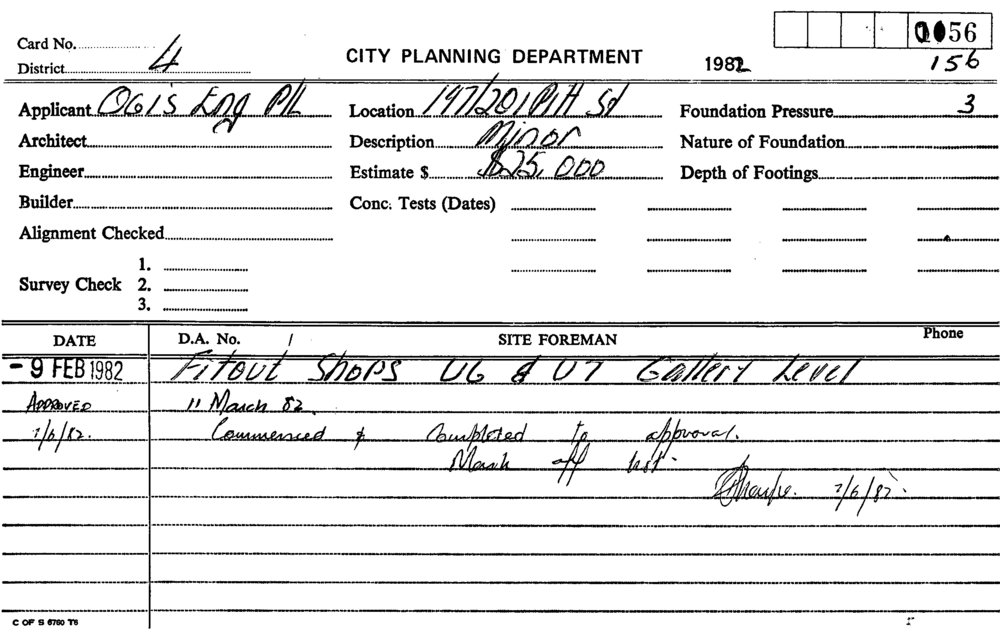 Card No.
1056
District 4
CITY PLANNING DEPARTMENT
1982
156
Applicant Ogis Eng P/L
Location 197/201 Pitt St
Foundation Pressure 3
Architect
Description Minor
Nature of Foundation
Engineer
Estimate $ $25,000
Depth of Footings
Builder
Conc. Tests (Dates)
Alignment Checked
Survey Check
1.
2.
3.
DATE
D.A. No.
SITE FOREMAN
Phone
- 9 FEB 1982
Fitout Shops U6 & U7 Gallery Level
APPROVED
11 March 82.
7/6/82.
Commenced & Completed to approval.
Mark off list.
7/6/82.
C OF S 6760 T6